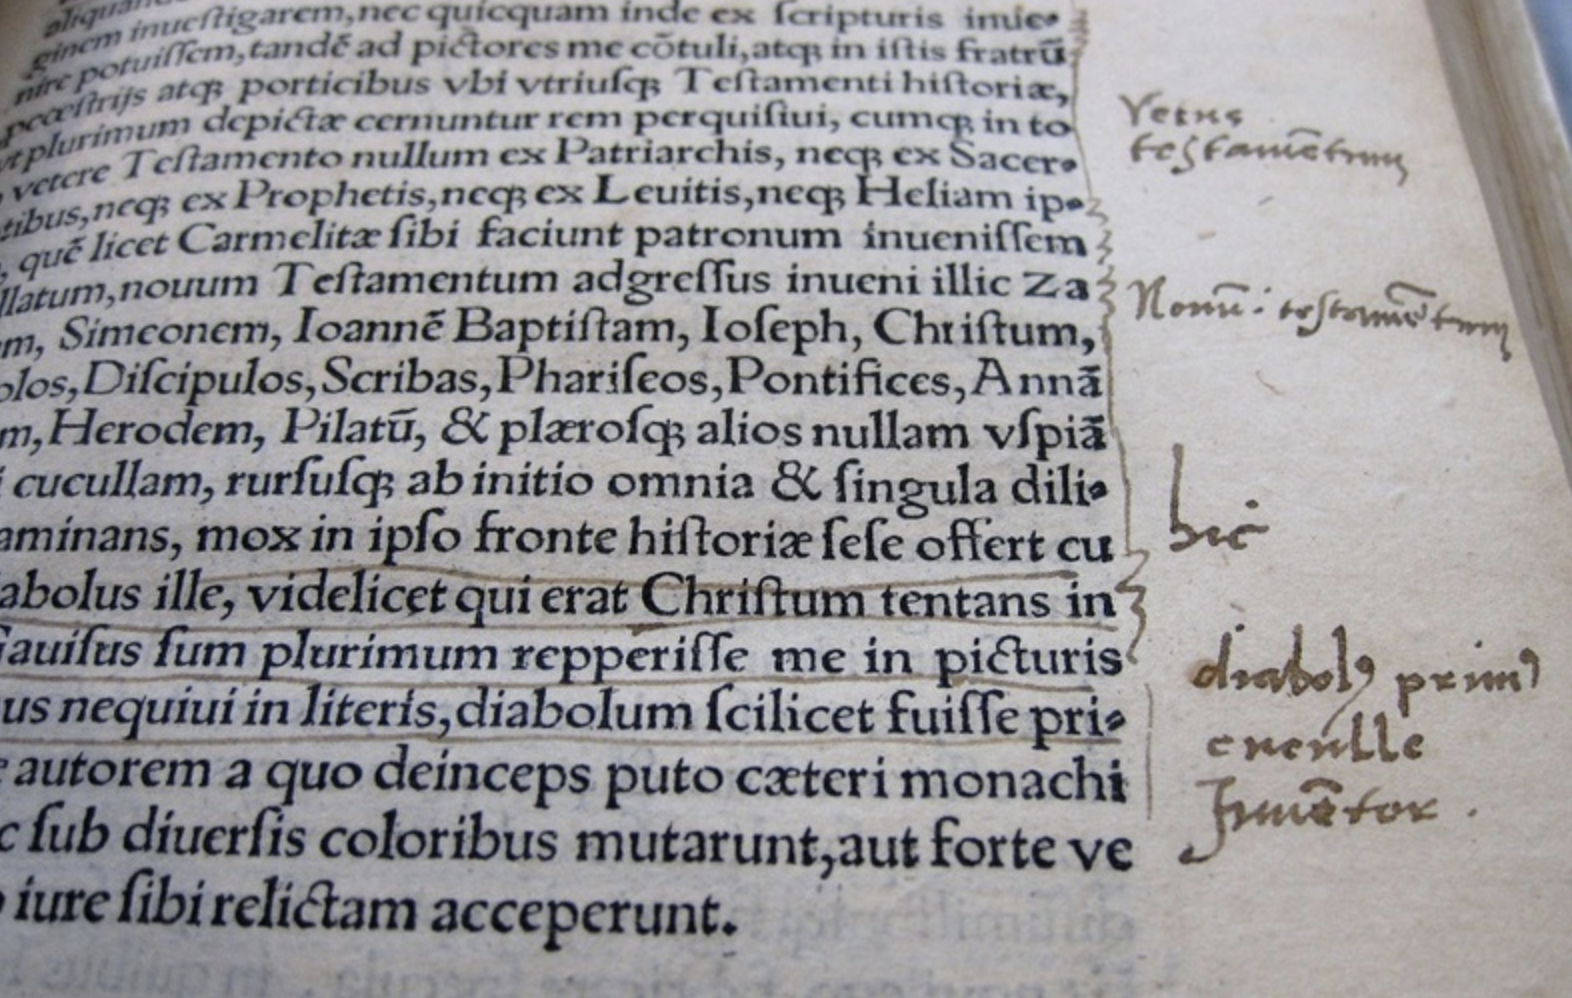 aliquando
ginem inueſtigarem, nec quicquam inde ex ſcripturis inue⸗
nire potuiſſem, tandē ad pictores me cōtuli, atqꝫ in iſtis fratrū
atqꝫ porticibus vbi vtriuſqꝫ Teſtamenti hiſtoriæ,
vt plurimum depictæ cernuntur rem perquiſiui, cumqꝫ in to
vetere Teſtamento nullum ex Patriarchis, neqꝫ ex Sacer⸗
tibus, neqꝫ ex Prophetis, neqꝫ ex Leuitis, neqꝫ Heliam ip⸗
, quē licet Carmelitæ ſibi faciunt patronum inueniſſem
llatum, nouum Teſtamentum adgreſſus inueni illic Za
m, Simeonem, Ioannē Baptiſtam, Ioſeph, Chriſtum,
olos, Diſcipulos, Scribas, Phariſeos, Pontifices, Annā
m, Herodem, Pilatū, & plæroſqꝫ alios nullam vſpiā
i cucullam, rurſuſqꝫ ab initio omnia & ſingula dili⸗
aminans, mox in ipſo fronte hiſtoriæ ſeſe offert cu
abolus ille, videlicet qui erat Chriſtum tentans in
Gauiſus ſum plurimum repperiſſe me in picturis
us nequiui in literis, diabolum ſcilicet fuiſſe pri⸗
autorem a quo deinceps puto cæteri monachi
c ſub diuerſis coloribus mutarunt, aut forte ve
o iure ſibi relictam acceperunt.
Vetus
teſtamētum
Nouū: teſtamētum
hic
diabolꝰ primꝰ
cuculle
Inuētor.